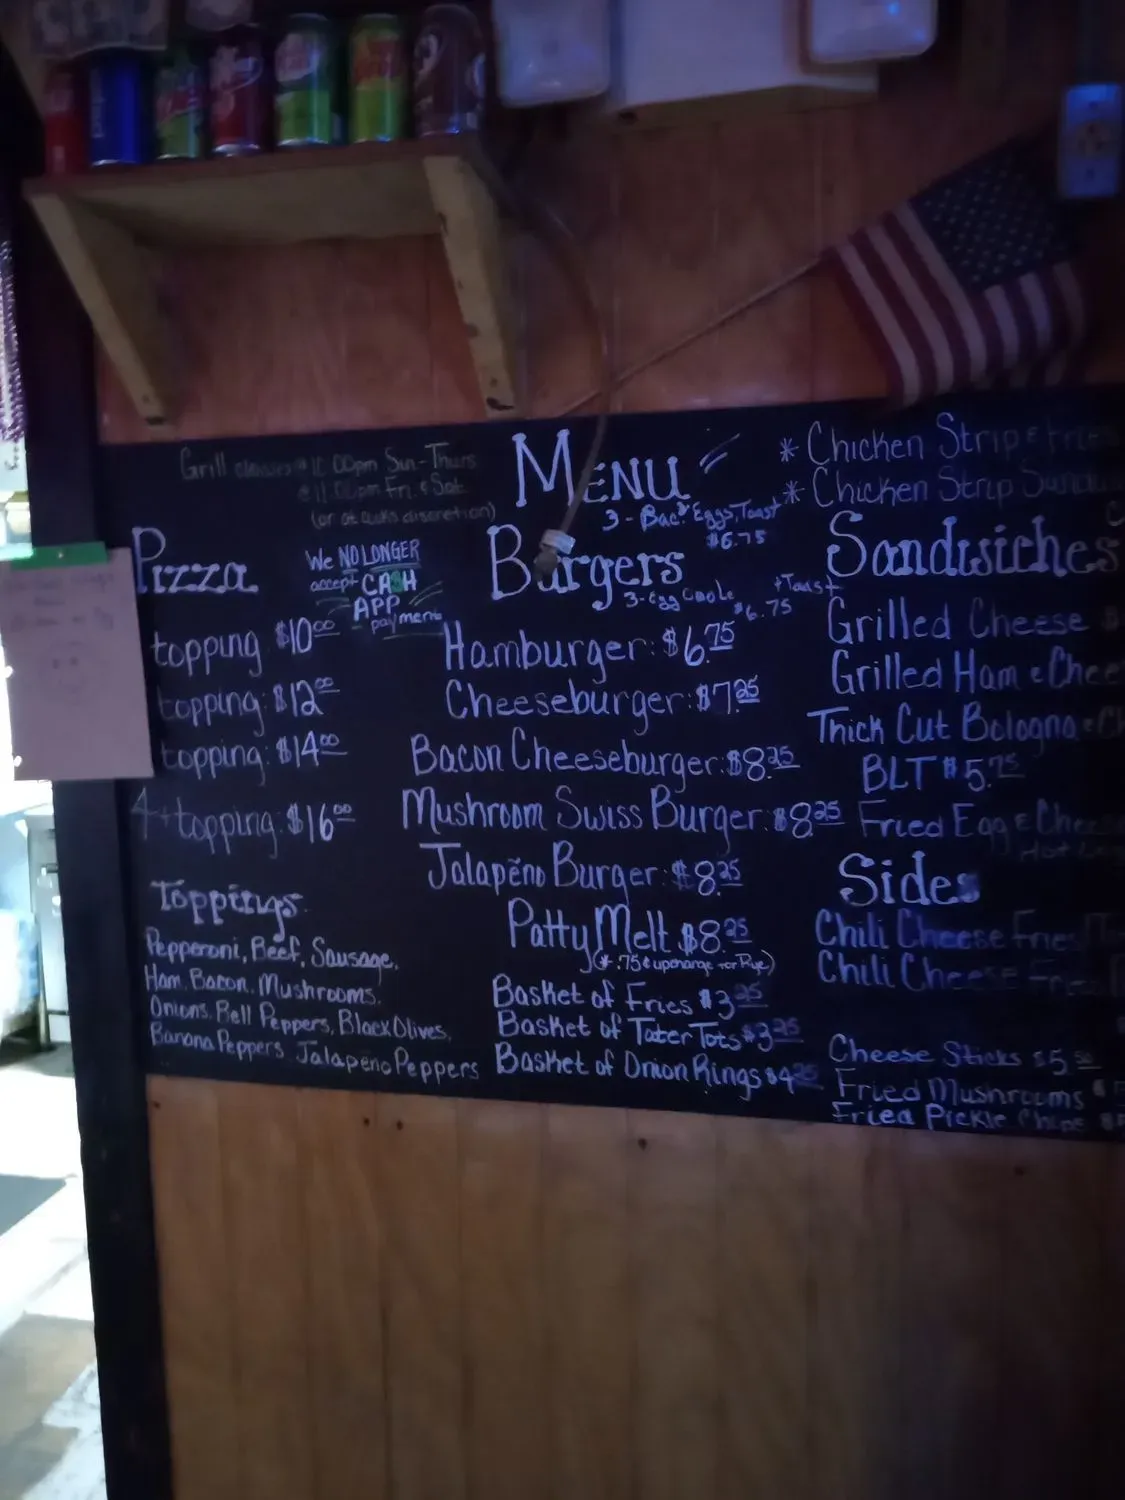 Grill closes @ 10:00pm Sun-Thurs
@ 11:00pm Fri & Sat
(or at Cooks discretion)
MENU
Pizza
We NO LONGER
accept CASH
APP
payments
topping $10.00
topping: $12.00
topping: $14.00
4+topping: $16.00
Toppings
Pepperoni, Beef, Sausage,
Ham, Bacon, Mushrooms,
Onions, Bell Peppers, Black Olives,
Banana Peppers, Jalapeno Peppers
3-Bac. Eggs, Toast
$6.75
Burgers
3-egg +Toast
$6.75
Hamburger: $6.75
Cheeseburger: $7.25
Bacon Cheeseburger: $8.25
Mushroom Swiss Burger: $8.25
Jalapeño Burger: $8.25
Patty Melt $8.25
(* .75¢ upcharge for Rye)
Basket of Fries $3.25
Basket of Tater Tots $3.25
Basket of Onion Rings $4.25
* Chicken Strip & Fries
* Chicken Strip
Sandwiches
Grilled Cheese
Grilled Ham &
Thick Cut Bologna &
BLT $5.75
Fried Egg &
Sides
Chili Cheese Fries
Chili Cheese Fries
Cheese Sticks $5.50
Fried Mushrooms $
Fried Pickle Chips $